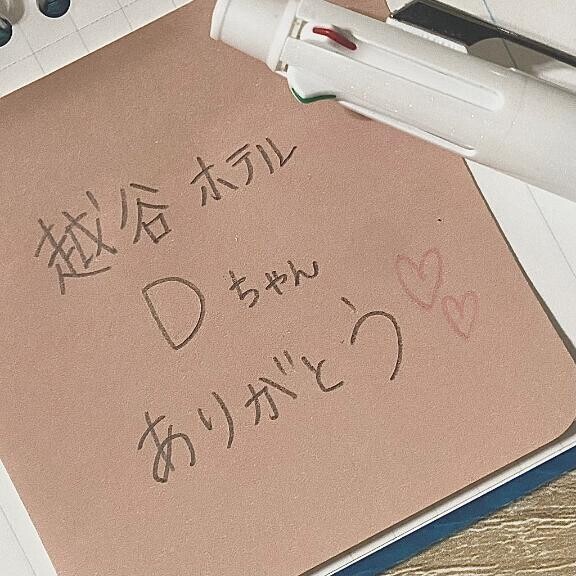 越谷 ホテル
Dちゃん
ありがとう